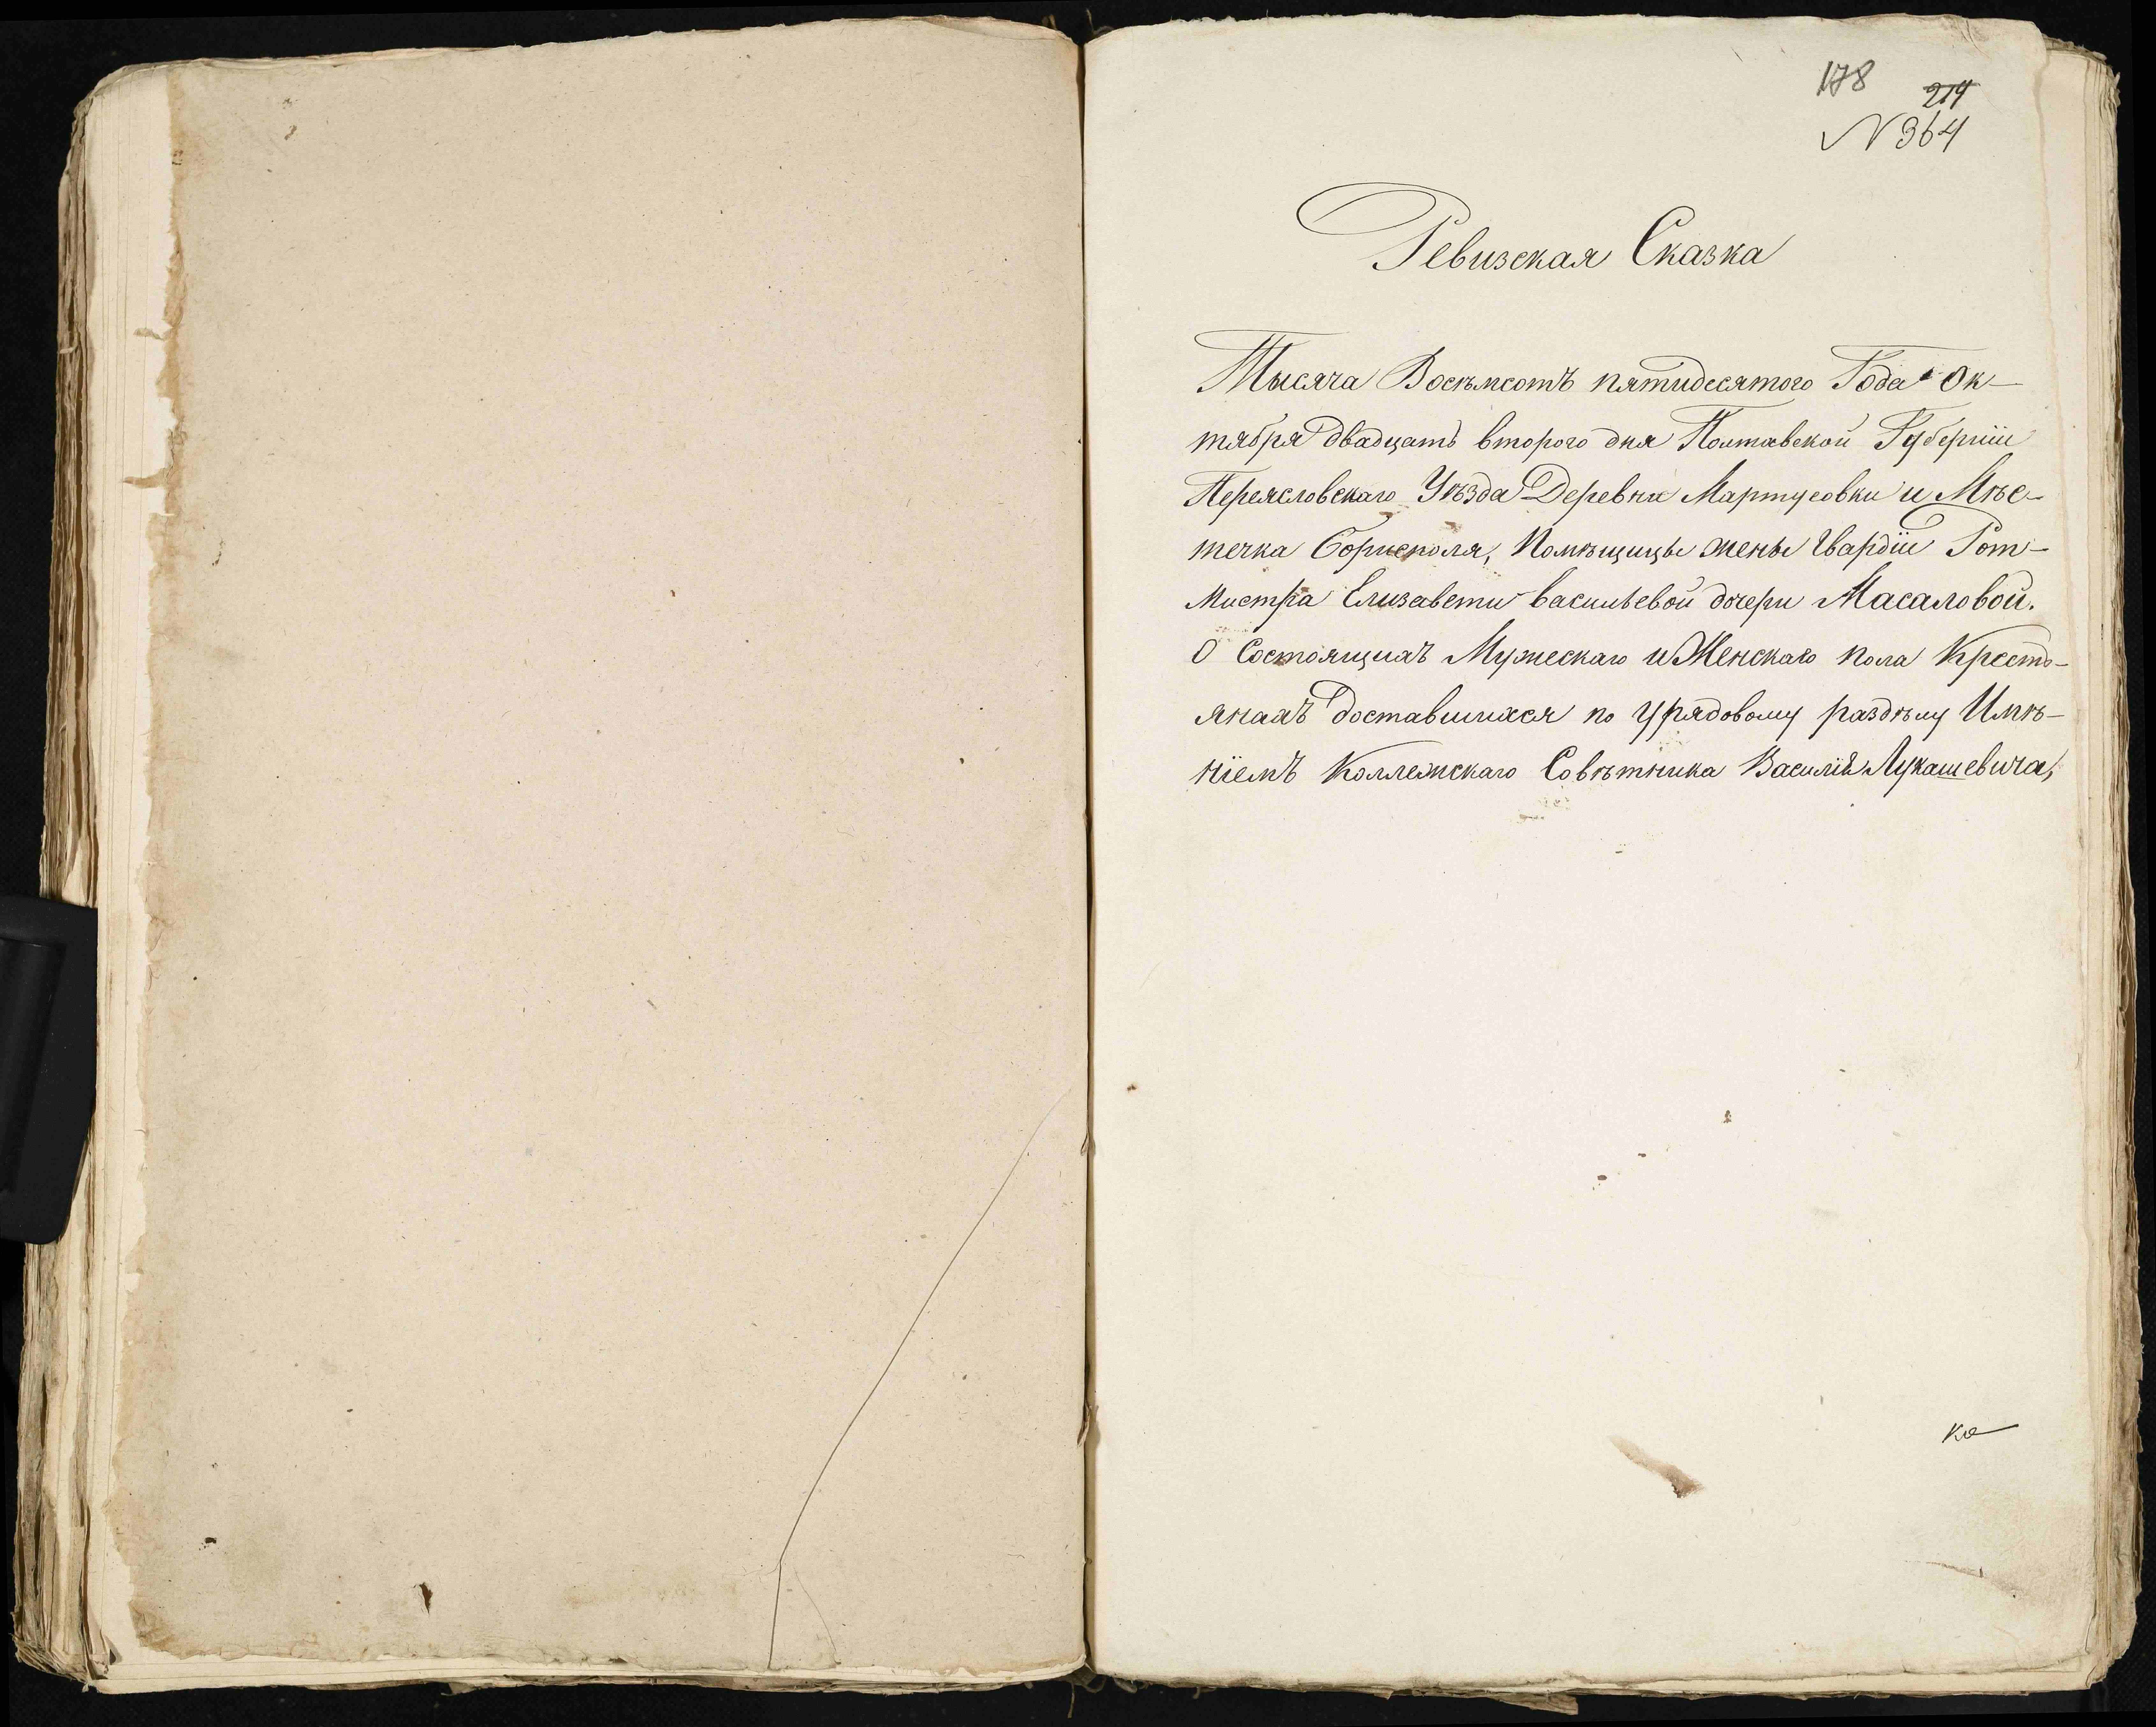 178
214
N 364
Ревизская Сказка
Тысяча Восѣмсотъ пятидесятого Года Ок-
тября двадцать второго дня Полтавской Губерніи
Переясловскаго Уѣзда Деревни Мартусовки и Мѣс-
течка Борисполя, Помѣщицы жены Гвардіи Рот-
мистра Елизаветы васильевой дочери Масаловой.
О Состоящихъ Мужескаго и Женскаго пола Кресть-
янахъ доставшихся по урядовому раздѣлу Имѣ-
ніемъ Коллежскаго Совѣтника Василія Лукашевича,